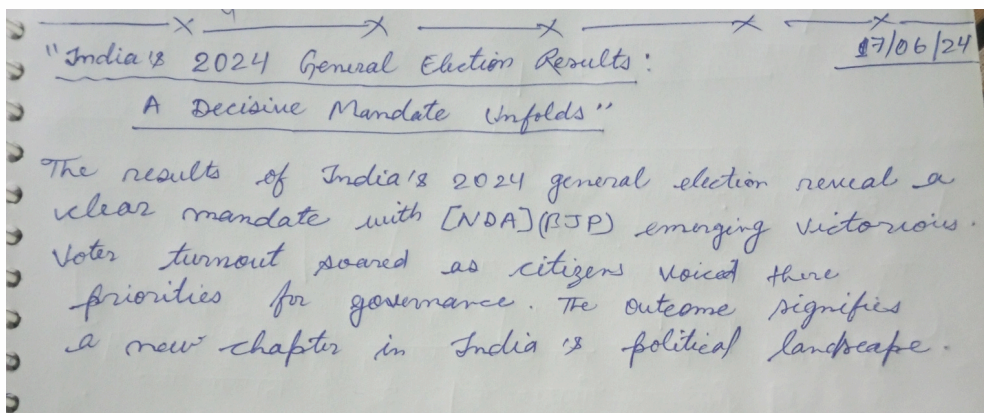 "India's 2024 General Election Results:
17/06/24
A Decisive Mandate Unfolds"
The results of India's 2024 general election reveal a
clear mandate with [NDA](BJP) emerging victorious.
Voter turnout soared as citizens voiced there
priorities for governance. The outcome signifies
a new chapter in India's political landscape.